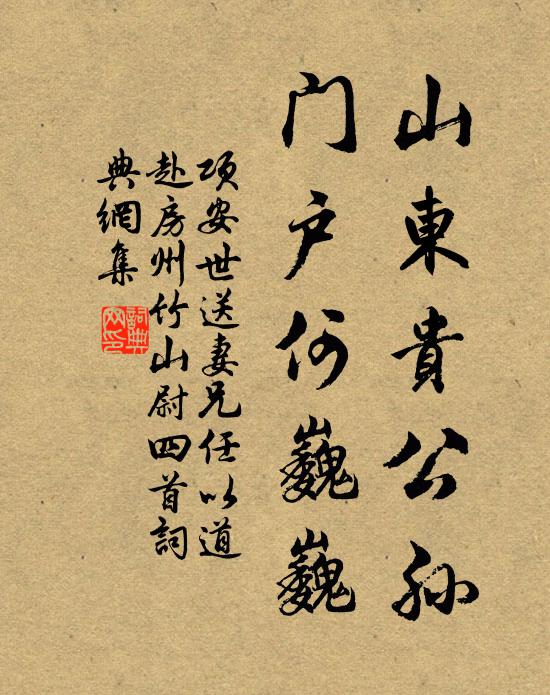 山東貴公孫
门户何巍巍
项安世送妻兄任以道
赴房州竹山尉四首詞
典網集
詞典网印